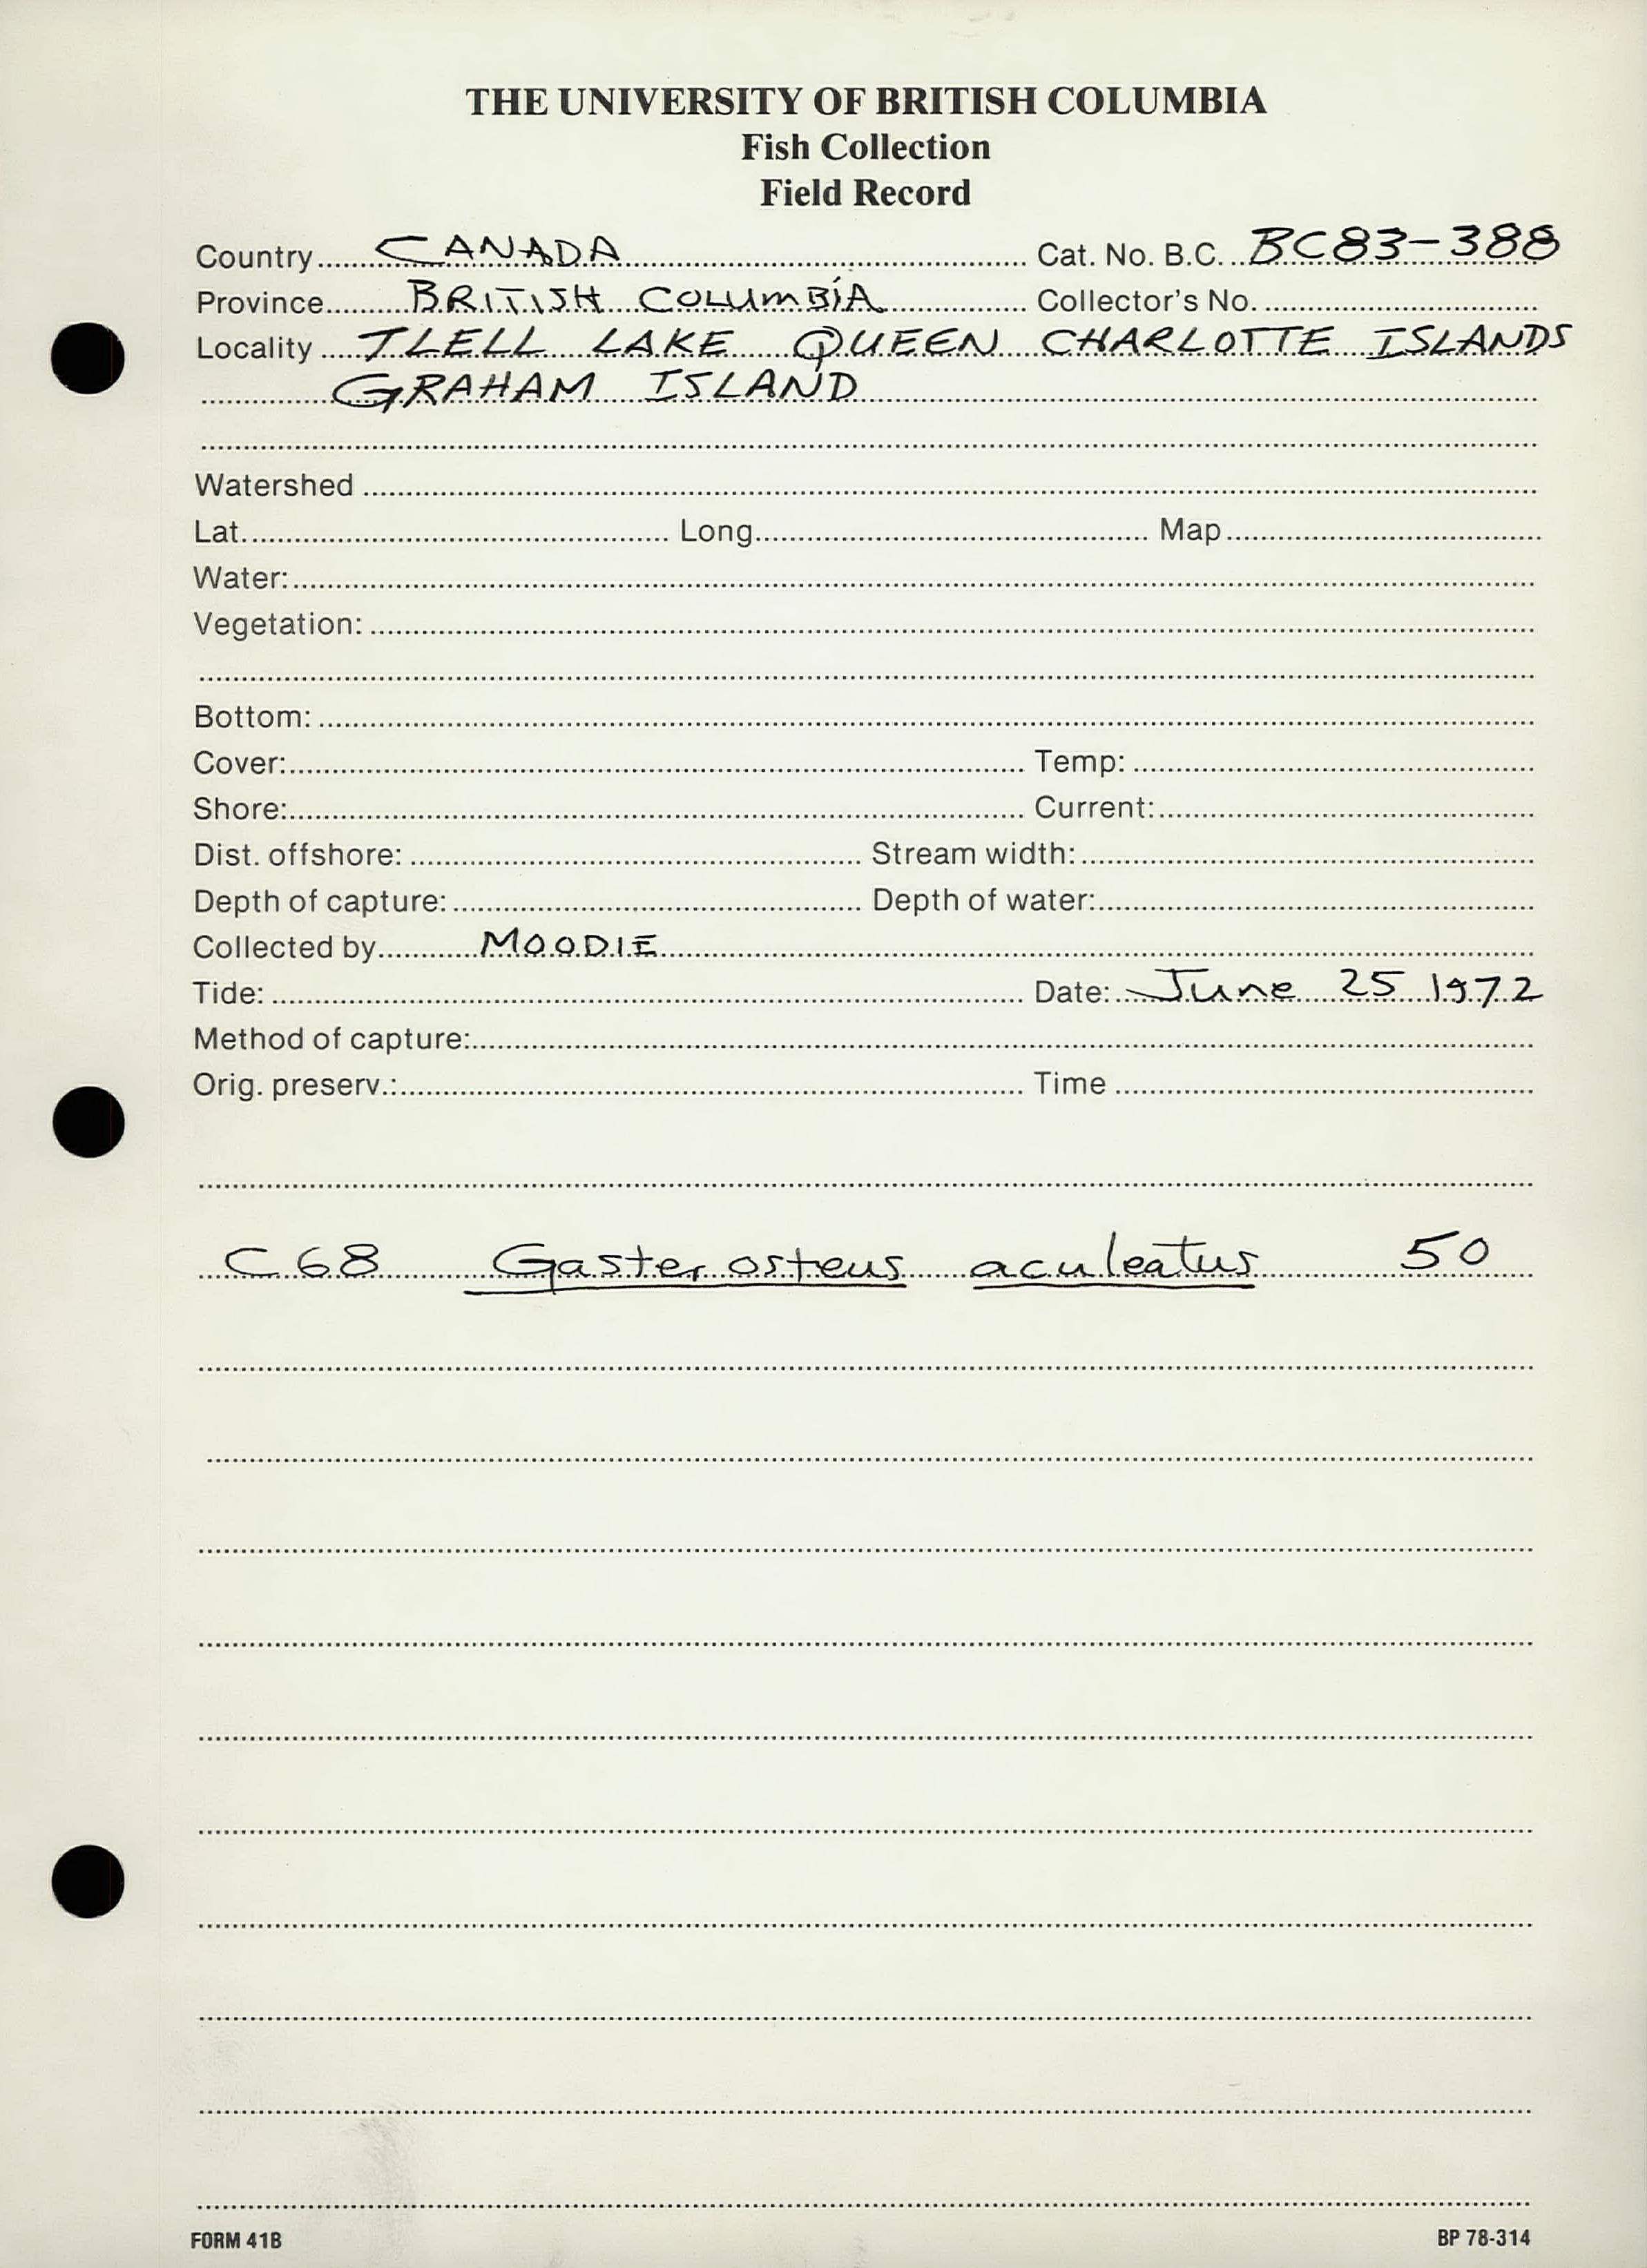 THE UNIVERSITY OF BRITISH COLUMBIA
Fish Collection
Field Record
Country CANADA Cat. No. B.C. BC83-388
Province BRITISH COLUMBIA Collector's No.
Locality TLELL LAKE QUEEN CHARLOTTE ISLANDS
GRAHAM ISLAND
Watershed
Lat. Long. Map
Water:
Vegetation:
Bottom:
Cover: Temp:
Shore: Current:
Dist. offshore: Stream width:
Depth of capture: Depth of water:
Collected by MOODIE
Tide: Date: June 25 1972
Method of capture:
Orig. preserv.: Time
C68 Gasterosteus aculeatus 50
FORM 41B BP 78-314